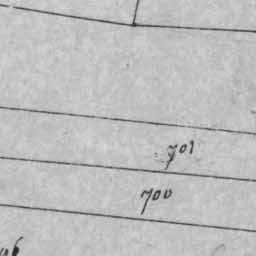 701
700